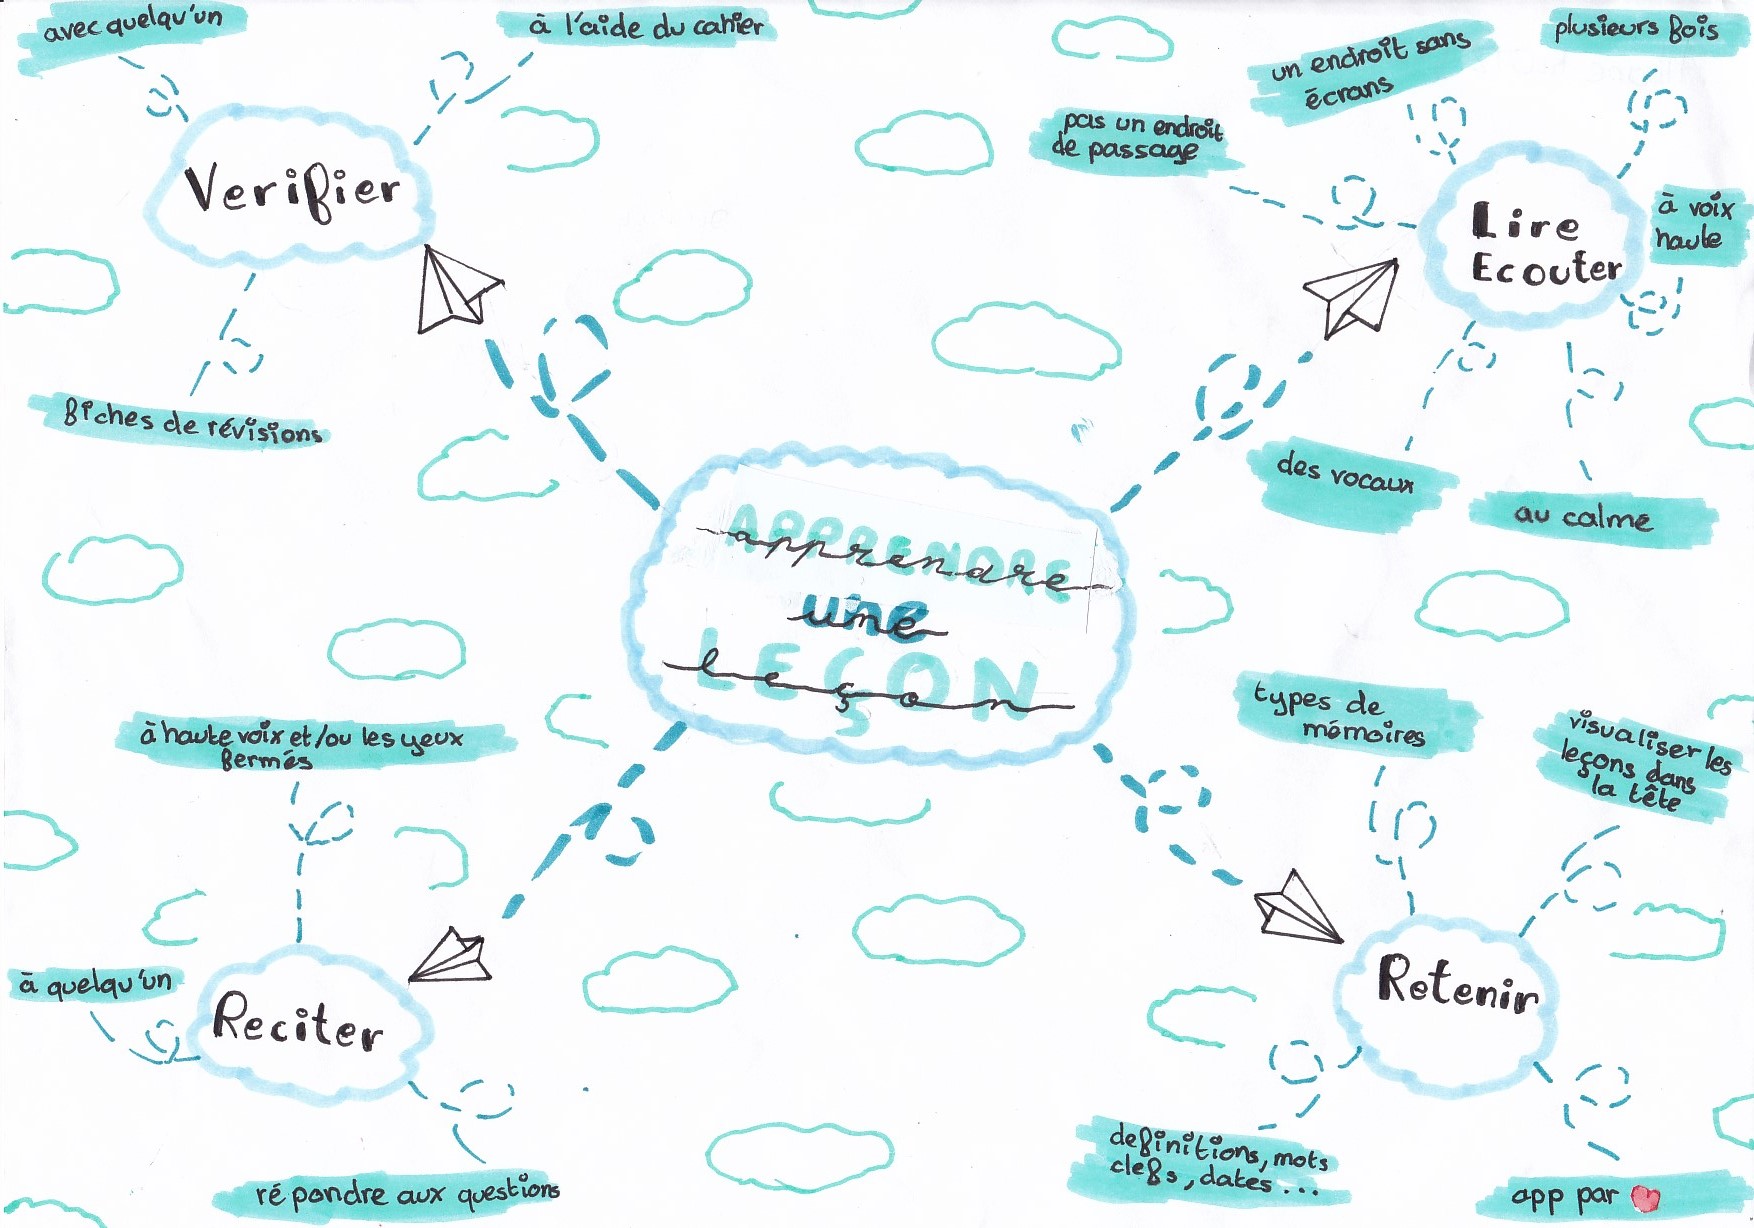 avec quelqu'un
à l'aide du cahier
Verifier
fiches de révisions
un endroit sans
écrans
plusieurs fois
pas un endroit
de passage
à voix
haute
Lire
Ecouter
des vocaux
au calme
APPRENDRE
apprendre
une
LEÇON
leçon
à haute voix et/ou les yeux
fermés
à quelqu'un
Reciter
répondre aux questions
types de
mémoires
visualiser les
leçons dans
la tête
Retenir
definitions, mots
clefs, dates...
app par ❤